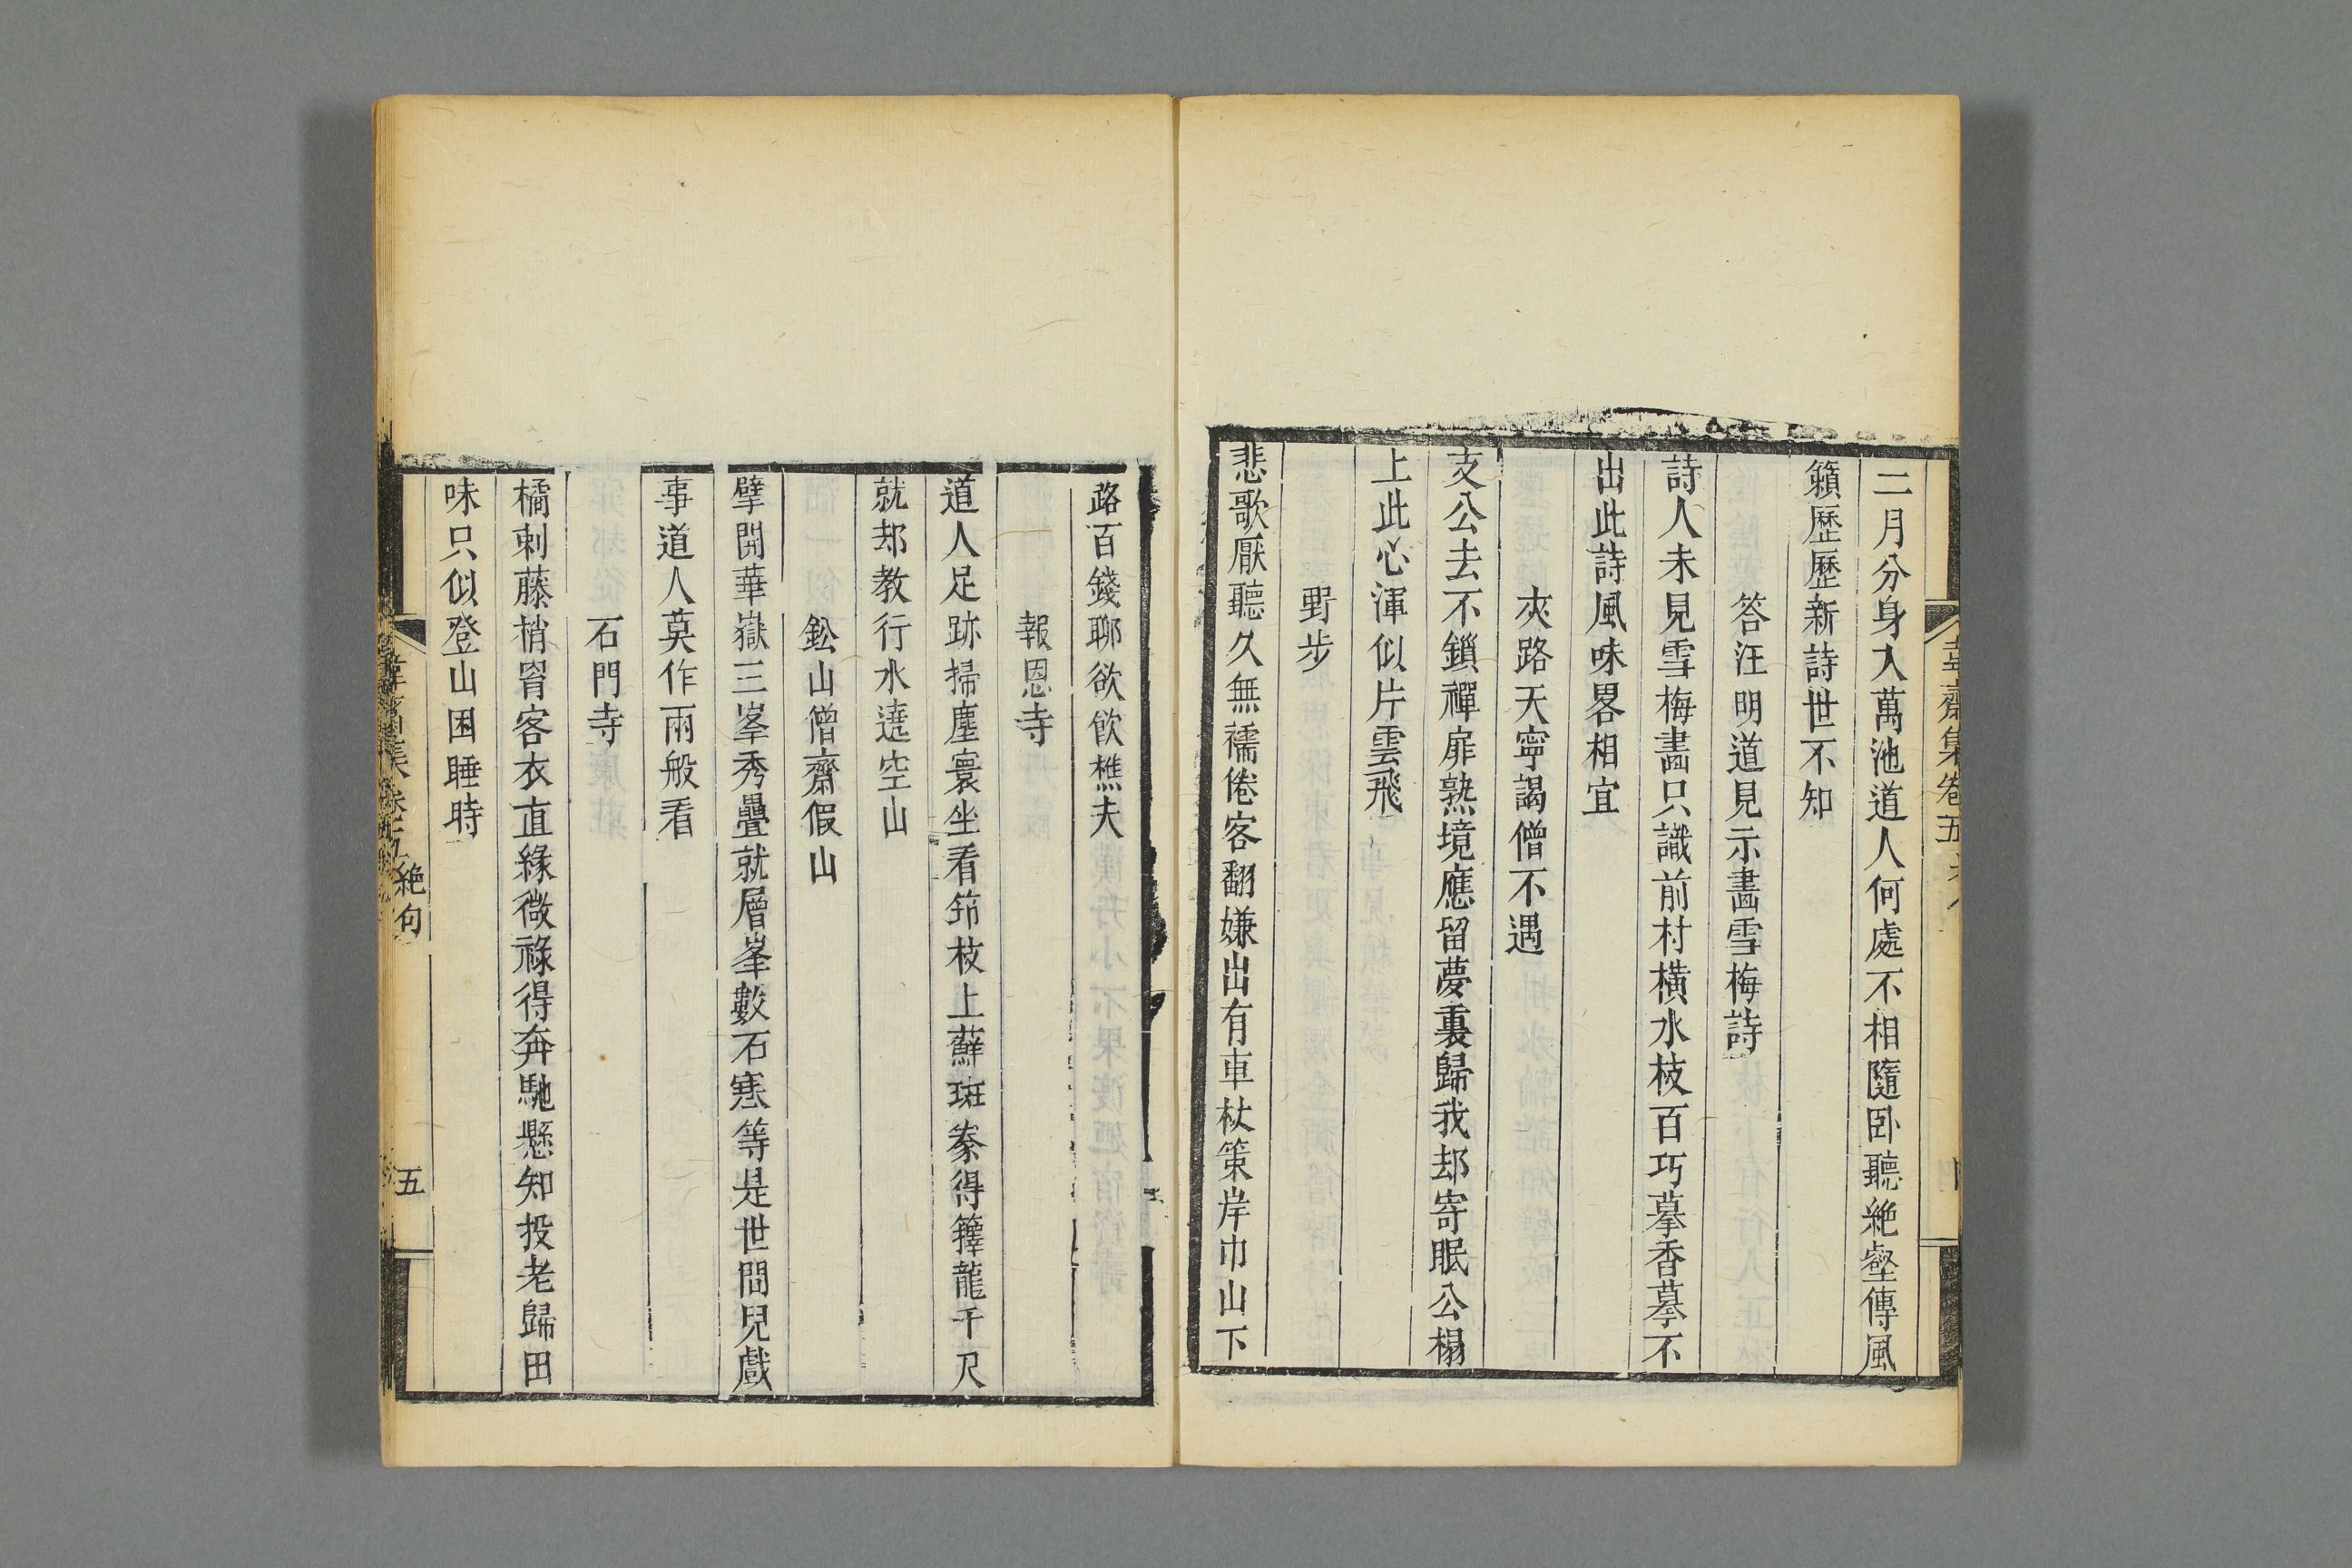 二月分身入萬池道人何處不相隨卧聽絶壑傳風
籟歷歷新詩世不知
答汪明道見示畵雪梅詩
詩人未見雪梅畵只識前村橫水枝百巧摹香摹不
出此詩風味畧相宜
夾路天寧謁僧不遇
支公去不鎖禪扉熟境應留夢裏歸我却寄眠公榻
上此心渾似片雲飛
野步
悲歌厭聽久無襦倦客翻嫌出有車杖策岸巾山下
路百錢聊欲飲樵夫
報恩寺
道人足跡掃塵寰坐看筇枝上蘚斑豢得籜龍千尺
就却教行水遶空山
鈆山僧齋假山
擘開華嶽三峯秀疊就層峯數石寒等是世間兒戲
事道人莫作兩般看
石門寺
橘刺藤梢罥客衣直緣微祿得奔馳懸知投老歸田
味只似登山困睡時
韋齋集卷五 絶句
五